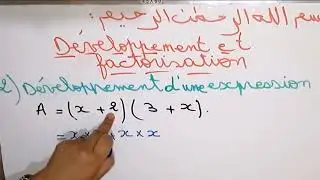 بسم الله الرحمن الرحيم:
Développement et
factorisation
2) Développement d'une expression
A = (x + 2)(3 + x).
= x x x × x